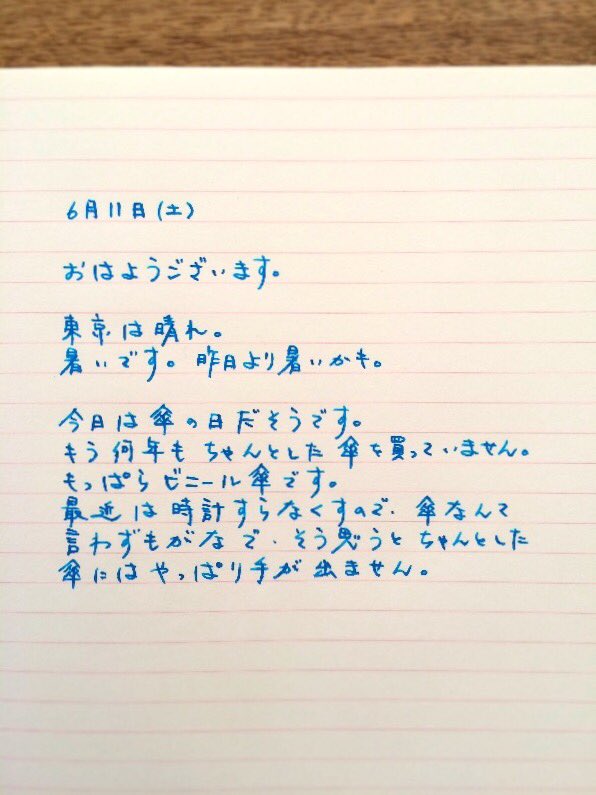 6月11日(土)
おはようございます。
東京は晴れ。
暑いです。昨日より暑いかも。
今日は傘の日だそうです。
もう何年もちゃんとした傘を買っていません。
もっぱらビニール傘です。
最近は時計すらなくすので、傘なんて
言わずもがなで、そう思うとちゃんとした
傘にはやっぱり手が出ません。